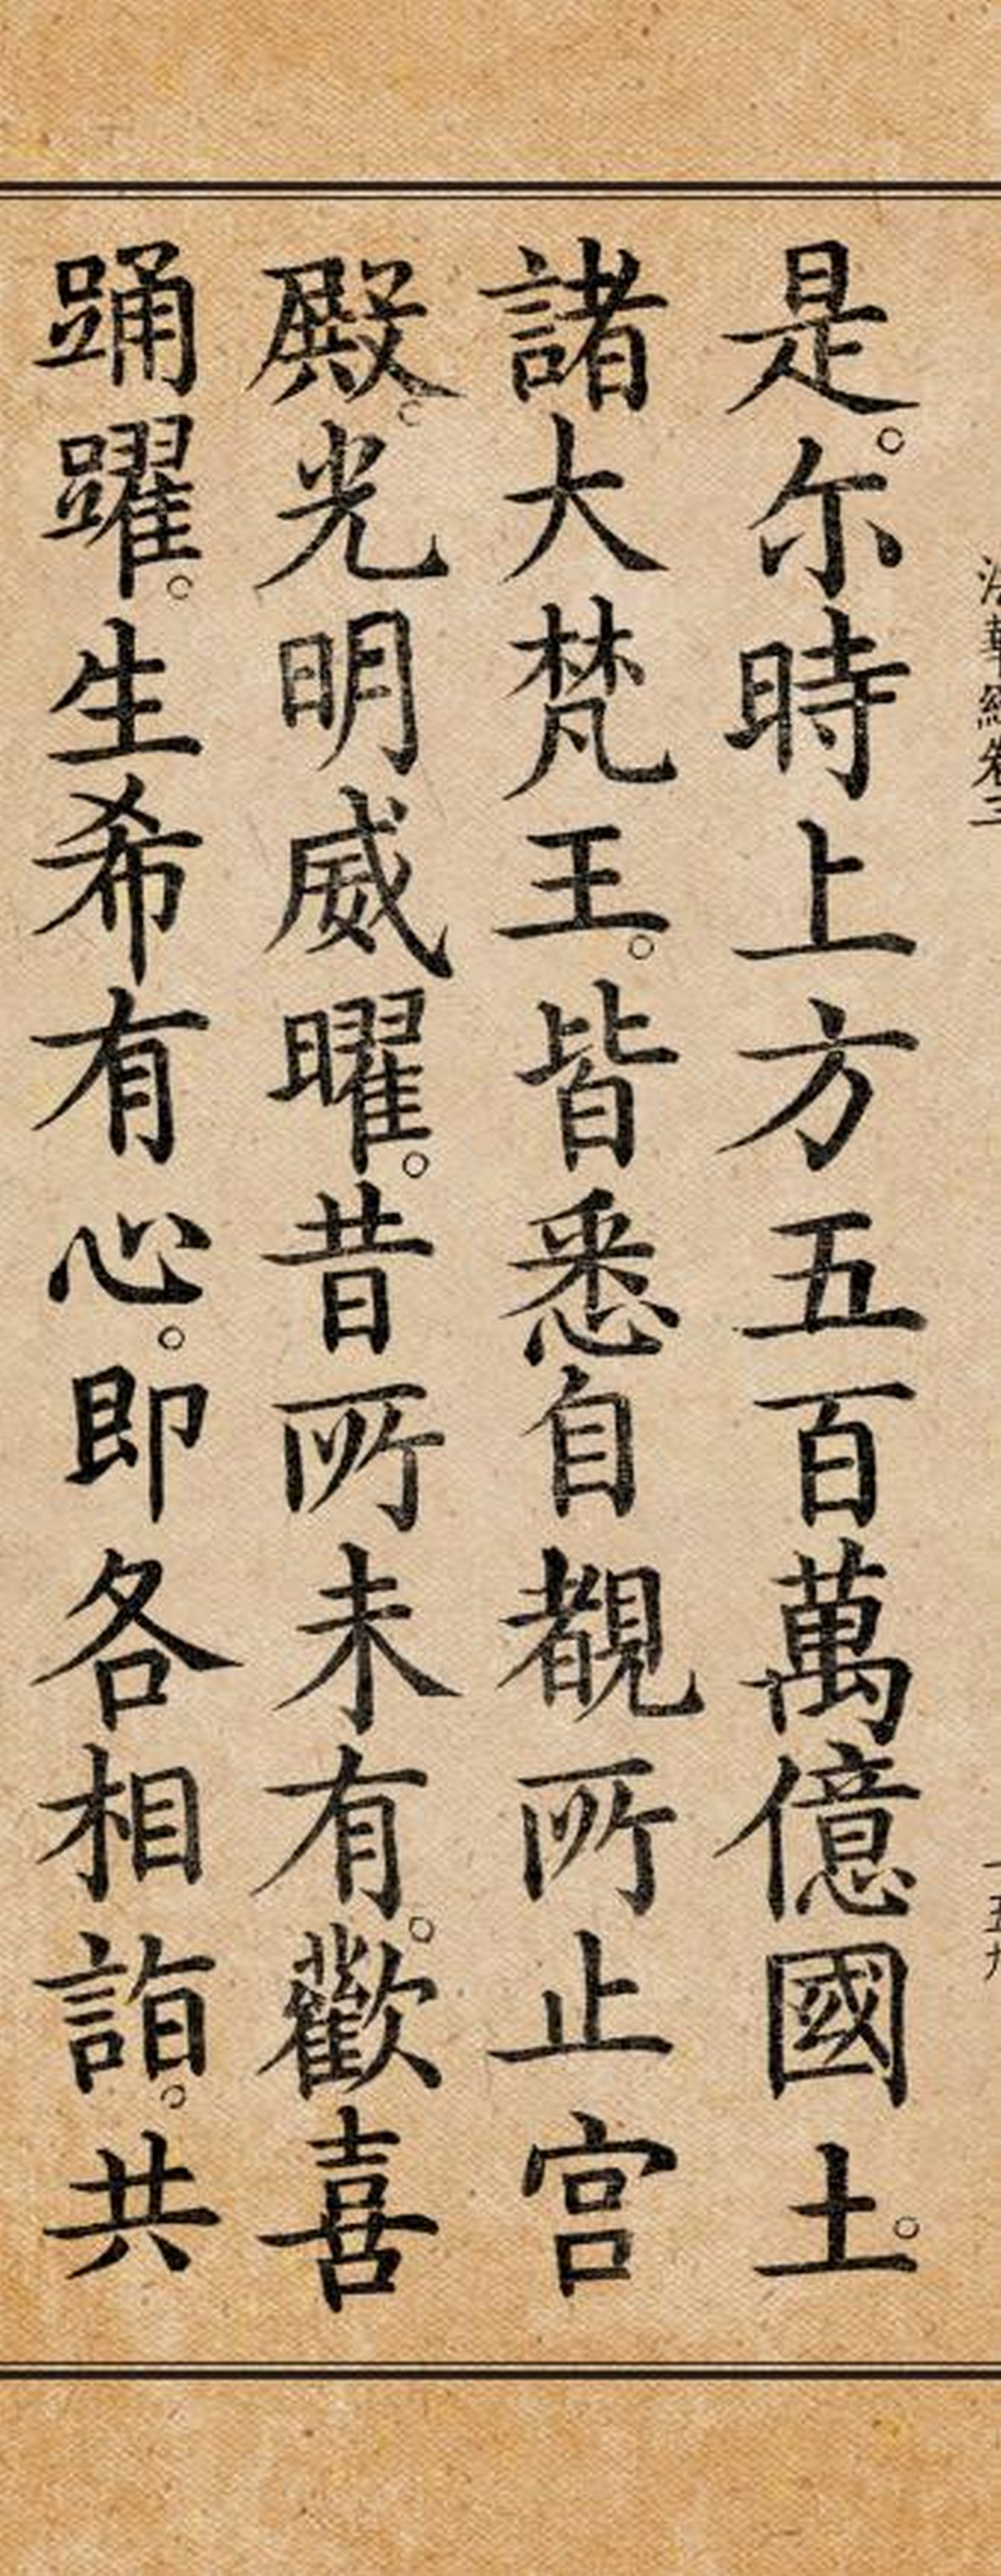 法華經卷三 一五九
是。尒時上方五百萬億國土。
諸大梵王。皆悉自覩所止宮
殿。光明威曜。昔所未有。歡喜
踊躍。生希有心。即各相詣。共